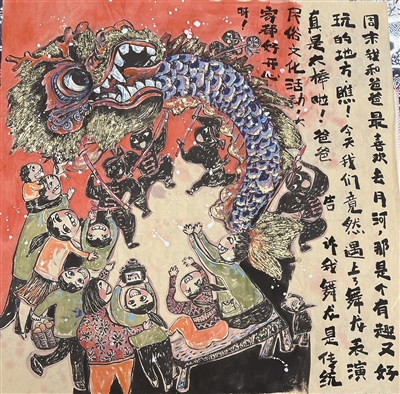 周末我和爸爸最喜欢去月河，那是个有趣又好
玩的地方瞧！今天我们竟然遇上了舞龙表演
真是太棒啦！爸爸告诉我舞龙是传统
民俗文化活动，大
家都好开心
呀！